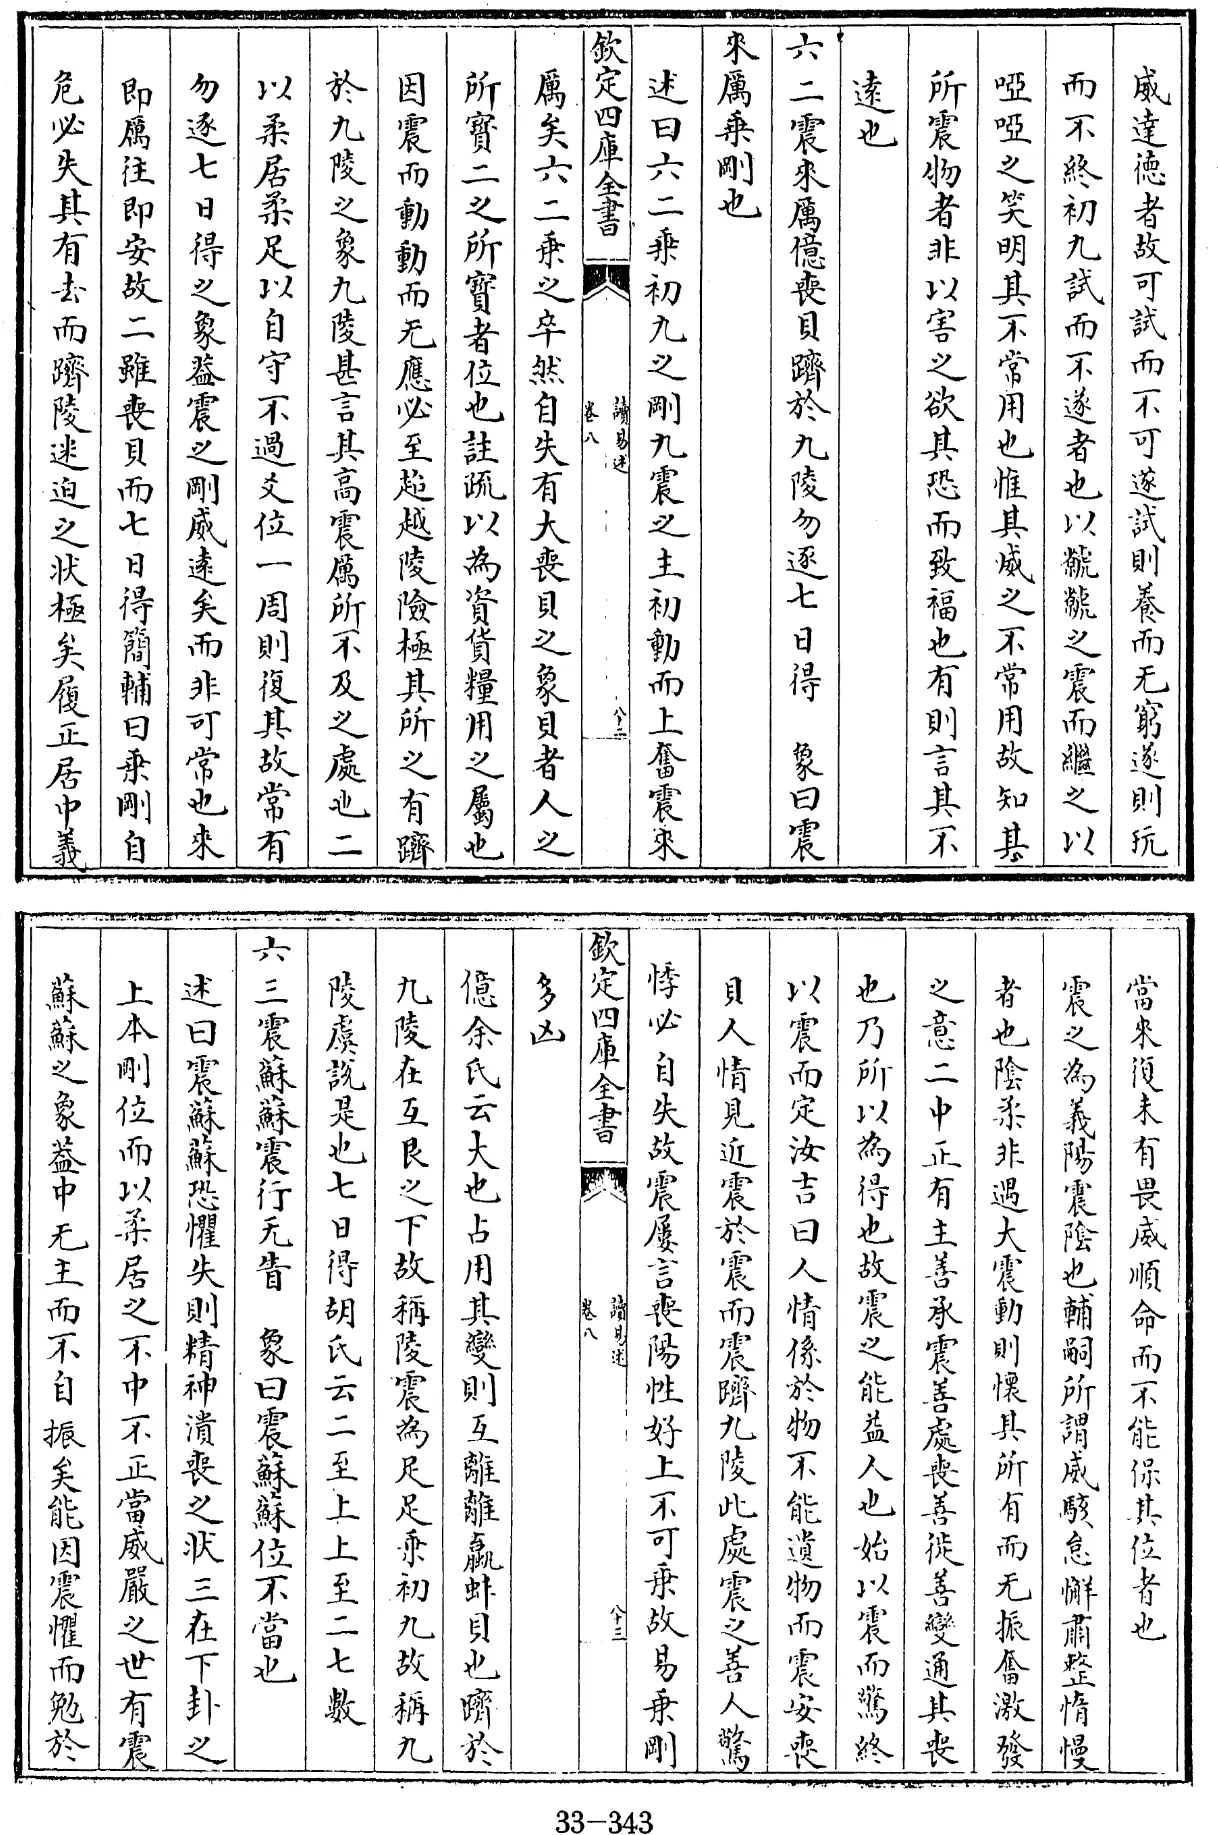 威達徳者故可試而不可遂試則養而无窮遂則玩
而不終初九試而不遂者也以虩虩之震而繼之以
啞啞之笑明其不常用也惟其威之不常用故知其
所震物者非以害之欲其恐而致福也有則言其不
遠也
六二震來厲億喪貝躋於九陵勿逐七日得　象曰震
來厲乗剛也
述曰六二乗初九之剛九震之主初動而上奮震來
欽定四庫全書
讀易述
卷八
八十二
厲矣六二乗之卒然自失有大喪貝之象貝者人之
所寳二之所寳者位也註疏以為資貨糧用之屬也
因震而動動而无應必至超越陵險極其所之有躋
於九陵之象九陵甚言其高震厲所不及之處也二
以柔居柔足以自守不過爻位一周則復其故常有
勿逐七日得之象葢震之剛威逺矣而非可常也來
即厲往即安故二雖喪貝而七日得簡輔曰乗剛自
危必失其有去而躋陵迷迫之状極矣履正居中義
當來復未有畏威順命而不能保其位者也
震之為義陽震陰也輔嗣所謂威駭怠懈肅整惰慢
者也陰柔非遇大震動則懷其所有而无振奮激發
之意二中正有主善承震善處喪善徙善變通其喪
也乃所以為得也故震之能益人也始以震而驚終
以震而定汝吉曰人情係於物不能遺物而震安喪
貝人情見近震於震而震躋九陵此處震之善人驚
悸必自失故震屢言喪陽性好上不可乗故易乗剛
欽定四庫全書
讀易述
卷八
八十三
多凶
億余氏云大也占用其變則互離離蠃蚌貝也躋於
九陵在互艮之下故稱陵震為足足乗初九故稱九
陵虞説是也七日得胡氏云二至上上至二七數
六三震蘇蘇震行无眚　象曰震蘇蘇位不當也
述曰震蘇蘇恐懼失則精神潰喪之状三在下卦之
上本剛位而以柔居之不中不正當威嚴之世有震
蘇蘇之象葢中无主而不自振矣能因震懼而勉於
33-343